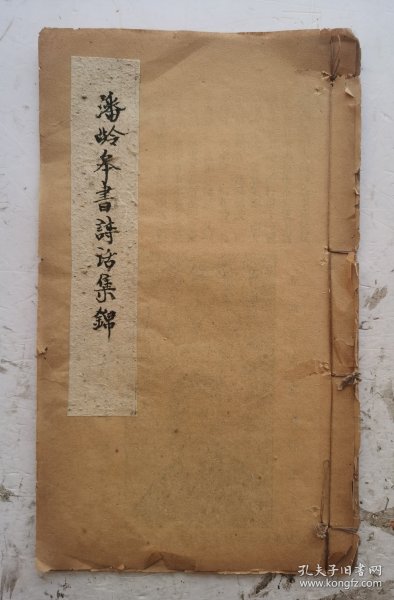 潘龄皋書詩話集錦
孔夫子旧书网
www.kongfz.com